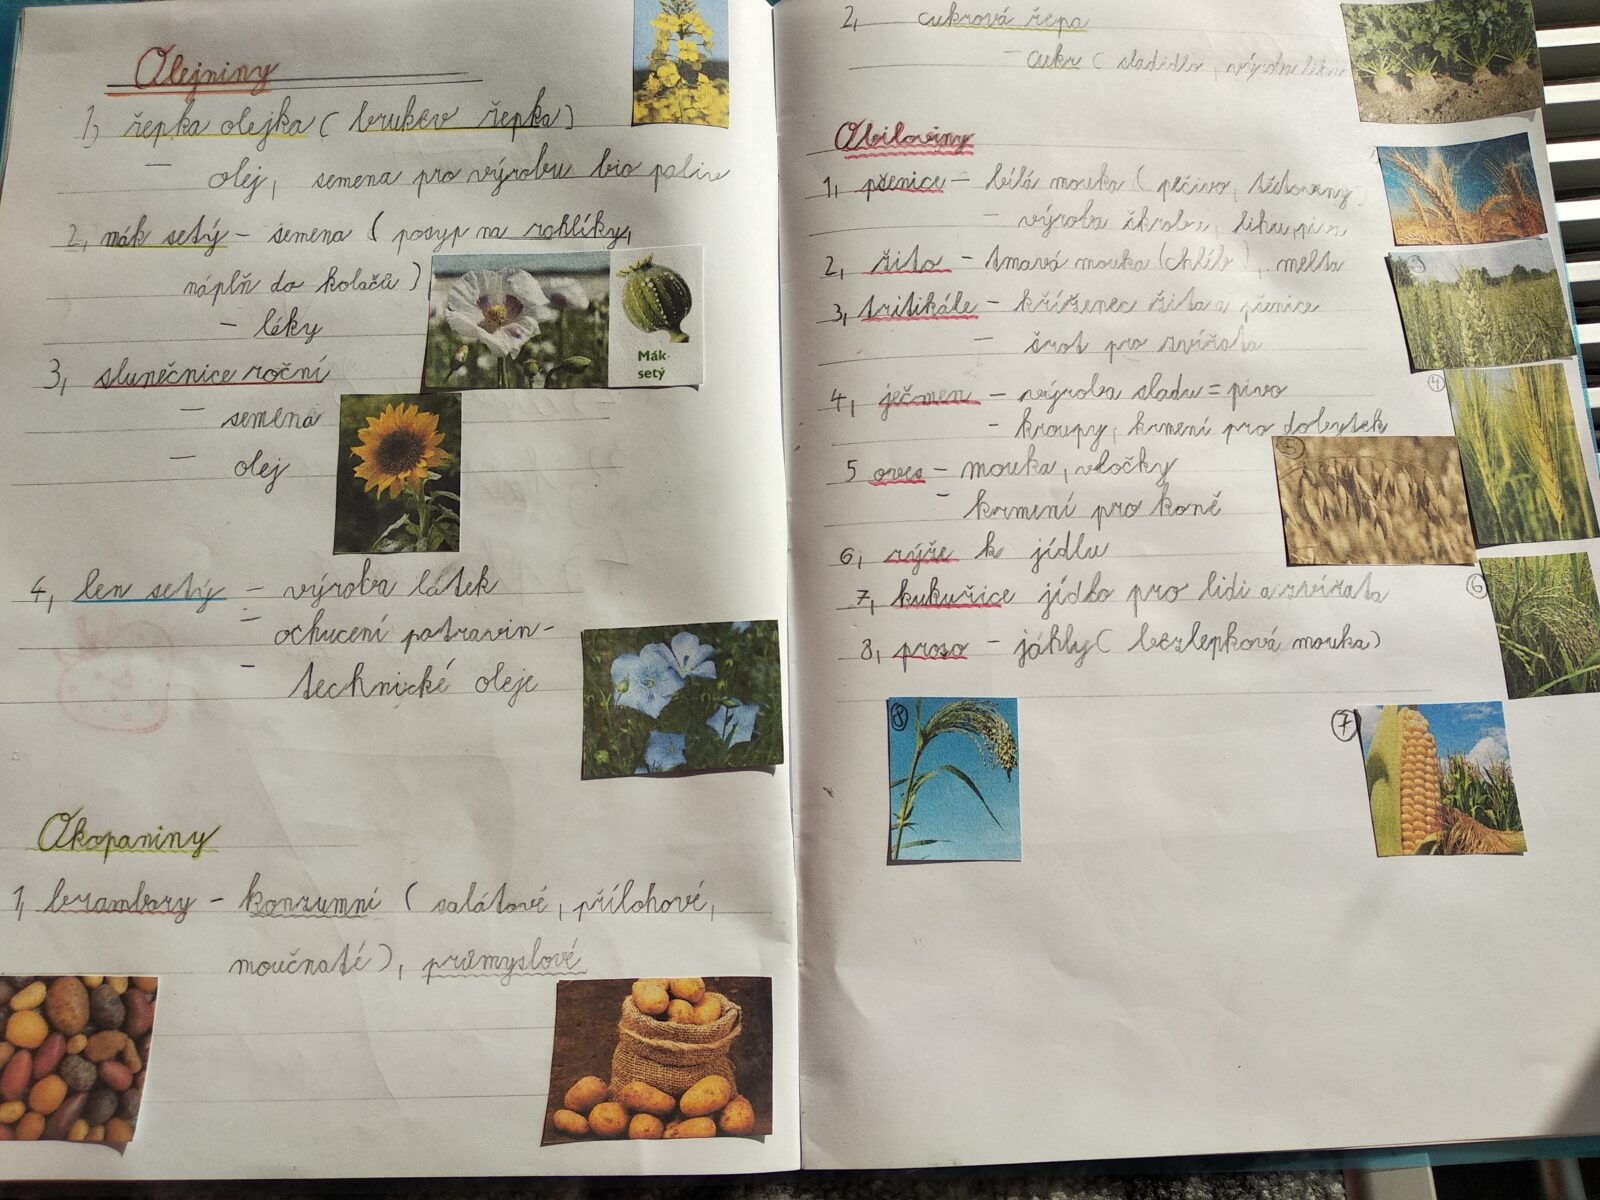 Olejniny
1, řepka olejka ( brukev řepka )
– olej, semena pro výrobu bio paliv
2, mák setý – semena ( posyp na rohlíky,
náplň do koláčů )
– léky
Mák-
setý
3, slunečnice roční
– semena
– olej
4, len setý – výroba látek
– ochucení potravin -
– technické oleje
Okopaniny
1, brambory – konzumní ( salátové, přílohové,
moučnaté ), průmyslové
2, cukrová řepa
– cukr ( sladidlo, výroba
Obiloviny
1, pšenice – bílá mouka ( pečivo, těstoviny
– výroba škrobu, lihu, piva
2, žito – tmavá mouka (chléb ), melta
3, tritikále – kříženec žita a pšenice
– šrot pro zvířata
4, ječmen – výroba sladu = pivo
– kroupy, krmení pro dobytek
5 oves – mouka, vločky
– krmení pro koně
6, rýže k jídlu
7, kukuřice jídlo pro lidi a zvířata
8, proso – jáhly ( bezlepková mouka )
3
4
5
6
8
7